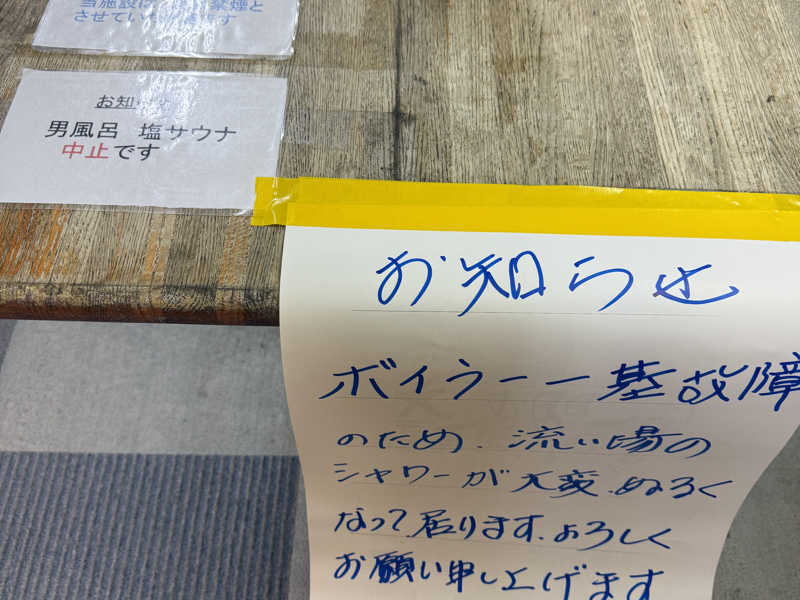 当施設は 禁煙と
させてい ます
お知ら
男風呂 塩サウナ
中止です
お知らせ
ボイラー一基故障
のため、流い場の
シャワーが大変、ぬるく
なって、居ります、よろしく
お願い申し上げます